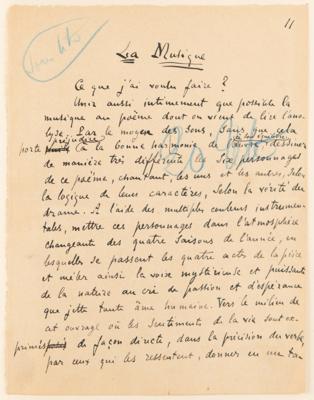 11
La Musique
Ce que j'ai voulu faire ?
Unir aussi intimement que possible la
musique au poème dont on vient de lire l'ana-
lyse. Par le moyen des sons, sans que cela
porte préjudice à la bonne harmonie de l'œuvre, dessiner
de manière très différente les six personnages
de ce poëme, chantant les uns et les autres, selon
la logique de leurs caractères, selon la vérité du
drame. À l'aide des multiples couleurs instrumen-
tales, mettre ces personnages dans l'atmosphère
changeante des quatre saisons de l'année, en
lesquelles se passent les quatre actes de la pièce
et mêler ainsi la voix mystérieuse et puissante
de la nature au cri de passion et d'espérance
que jette toute âme humaine. Vers le milieu de
cet ouvrage où les sentiments de la vie sont ex-
primés de façon directe, dans la précision du verbe,
par ceux qui les ressentent, donner en un ta-